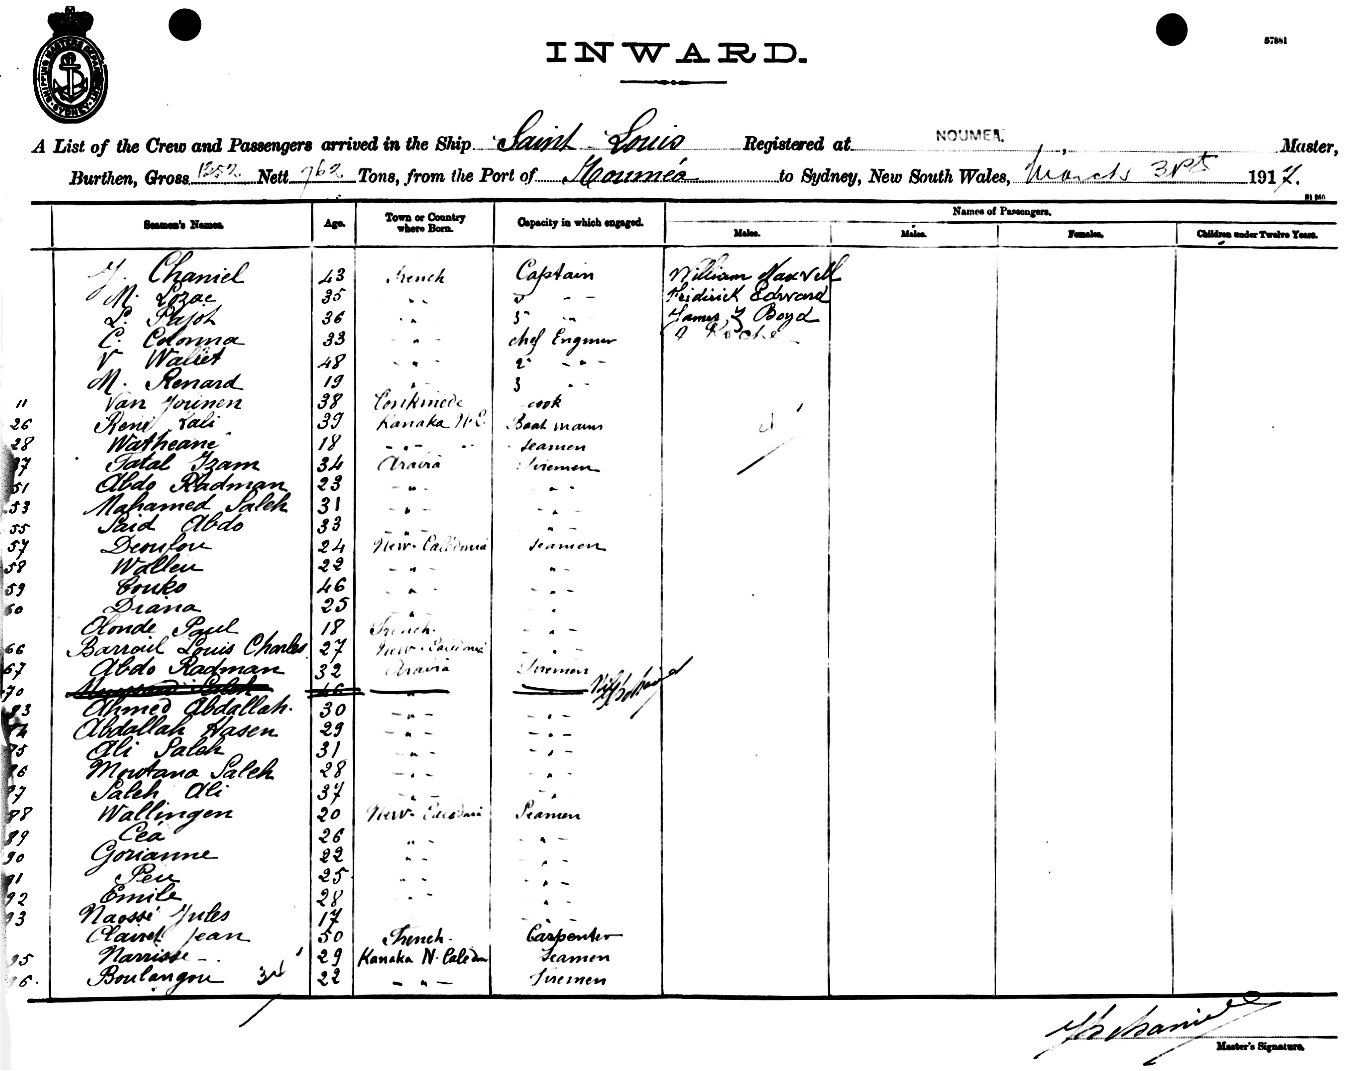 57881
INWARD.
SHIPPING MASTERS DEPARTMENT SYDNEY
A List of the Crew and Passengers arrived in the Ship Saint-Louis Registered at NOUMEA. Master,
Burthen, Gross 1252 Nett 762 Tons, from the Port of Nouméa to Sydney, New South Wales, March 3rd 1917.
Seamen's Names. Age. Town or Country where Born. Capacity in which engaged. Names of Passengers.
Males. Males. Females. Children under Twelve Years.
Y. Chaniel 43 French Captain William Maxwell
M. Lozac 35 " - " - Fridirick Edward
L. Pajot 36 " - " - James Y Boyd
C. Colonna 33 " - chef Engineer
V. Waliet 48 - " - 2 " - -
M. Renard 19 - " - 3 " -
11 Van Jounen 38 cook
26 René Kali 39 Kanaka N. C. Boatmann
28 Watheane 18 - " - Seamen
37 Tatal Izam 34 Aravia Firemen
51 Abdo Radman 23 - " - - " -
53 Mahamed Saleh 31 - " - - " -
55 Said Abdo 33 - " - - " -
57 Deoulou 24 New-Calédonia Seamen
58 Wallen 22 - " - - " -
59 Couko 46 - " - - " -
60 Diana 25 - " - - " -
Olonde Paul 18 French. - " -
66 Barrail Louis Charles 27 New-Calédonia - " -
67 Abdo Radman 32 Aravia Firemen
70 Saleh 46 "
83 Ahmed Abdallah. 30 - " - - " -
84 Abdallah Hasen 29 - " - - " -
85 Ali Saleh 31 - " - - " -
86 Moutana Saleh 28 - " - - " -
87 Saleh Ali 37 - " - - " -
88 Wallingen 20 New-Caledonia Seamen
89 Céa 26 " " - " -
90 Gorianne 22 - " - - " -
91 Peu 25 - " - - " -
92 Emile 28 - " - - " -
93 Naossé Jules 17 - " -
Clairet Jean 50 French. Carpenter
95 Narrisse - . 29 Kanaka N. Caledon Seamen
96. Boulangou 34 22 - " - Firemen
Y Chaniel
Master's Signature.